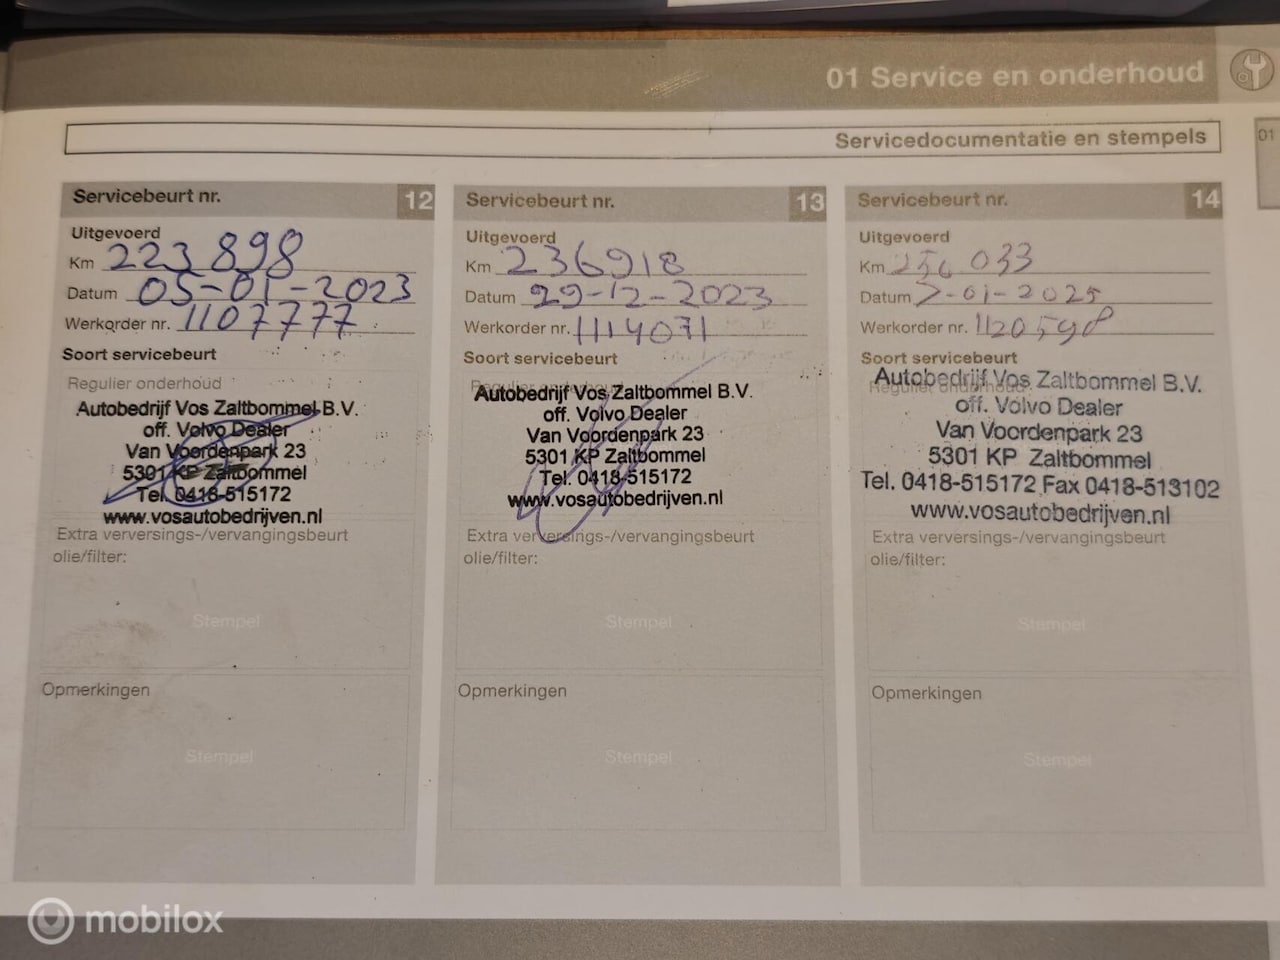 01 Service en onderhoud
01
Servicedocumentatie en stempels
Servicebeurt nr. 12
Uitgevoerd
Km 223898
Datum 05-01-2023
Werkorder nr. 1107777
Soort servicebeurt
Regulier onderhoud
Autobedrijf Vos Zaltbommel B.V.
off. Volvo Dealer
Van Voordenpark 23
5301 KP Zaltbommel
Tel. 0418-515172
www.vosautobedrijven.nl
Extra verversings-/vervangingsbeurt
olie/filter:
Stempel
Opmerkingen
Stempel
Servicebeurt nr. 13
Uitgevoerd
Km 236918
Datum 29-12-2023
Werkorder nr. 1114071
Soort servicebeurt
Regulier onderhoud
Autobedrijf Vos Zaltbommel B.V.
off. Volvo Dealer
Van Voordenpark 23
5301 KP Zaltbommel
Tel. 0418-515172
www.vosautobedrijven.nl
Extra verversings-/vervangingsbeurt
olie/filter:
Stempel
Opmerkingen
Stempel
Servicebeurt nr. 14
Uitgevoerd
Km
Datum 7-01-2025
Werkorder nr. 1120598
Soort servicebeurt
Regulier onderhoud
Autobedrijf Vos Zaltbommel B.V.
off. Volvo Dealer
Van Voordenpark 23
5301 KP Zaltbommel
Tel. 0418-515172 Fax 0418-513102
www.vosautobedrijven.nl
Extra verversings-/vervangingsbeurt
olie/filter:
Stempel
Opmerkingen
Stempel
mobilox